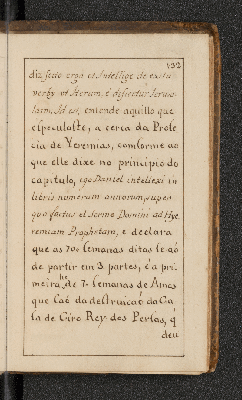 192
diz Scito ergo et Intellige de exitu
verby ut iterum ædificetur Jerusa-
laim, Id est, entende aquillo que
especulaste, a cerca da Profe
cia de Yeremias, conforme ao
que elle dixe no principio do
capitulo, ego Daniel intellexi in
libris numerum annorum, super
quo factus est sermo Domini ad Hye
remiam Prophetam, e declara
que as 70 Semanas ditas se aõ
de partir em 3 partes, e a pri
meira he de 7 Semanas de Annos
que Saõ da destruicaõ da Ca
sa de Ciro Rey dos Persas, q̃
deu